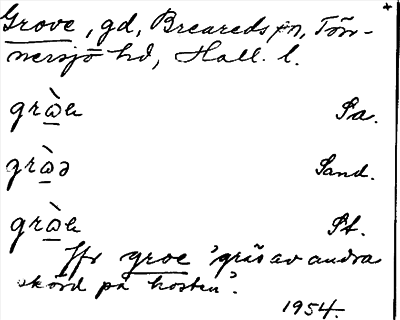 Grove, gd, Breareds sn, Tön-
nersjö hd, Hall. l.
+
grὼa Sa.
grὼə Sand.
grὼa St.
Jfr groe 'gräs av andra
skörd på hösten'.
1954.